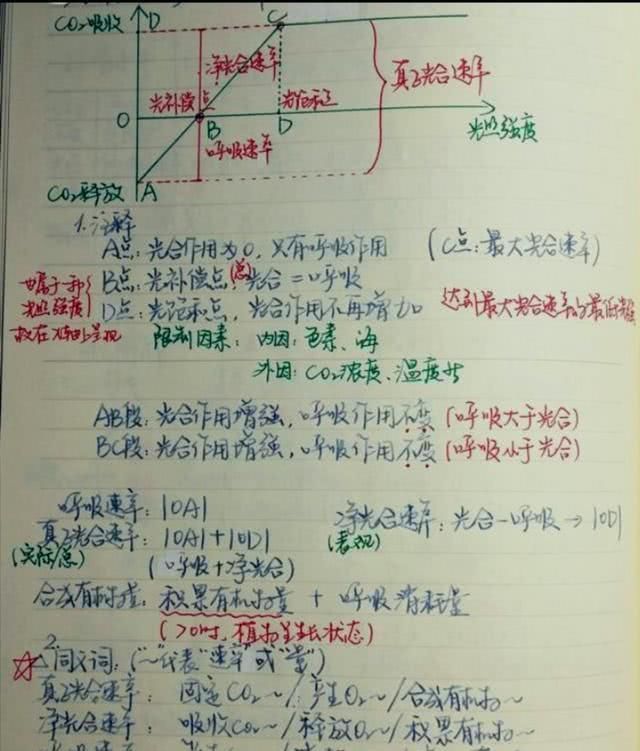 CO₂吸收 D C
净光合速率
真正光合速率
光补偿点 光饱和点
O B D 光照强度
呼吸速率
CO₂释放 A
1. 注释
A点: 光合作用为0, 只有呼吸作用 (C点: 最大光合速率)
B点: 光补偿点, (总)光合 = 呼吸
D点: 光饱和点, 光合作用不再增加 达到最大光合速率的最低
光照强度
限制因素: 内因: 色素、海
外因: CO₂浓度、温度等
AB段: 光合作用增强, 呼吸作用不变 (呼吸大于光合)
BC段: 光合作用增强, 呼吸作用不变 (呼吸小于光合)
呼吸速率: |OA| 净光合速率: 光合-呼吸→|OD|
真正光合速率: |OA|+|OD| (表观)
(实际/总) (呼吸+净光合)
合成有机物量: 积累有机物量 + 呼吸消耗量
(>0时, 植物生长状态)
2. 同义词: ("~"代表"速率"或"量")
真正光合速率: 固定CO₂~/产生O₂~/合成有机物~
净光合速率: 吸收CO₂~/释放O₂~/积累有机物~